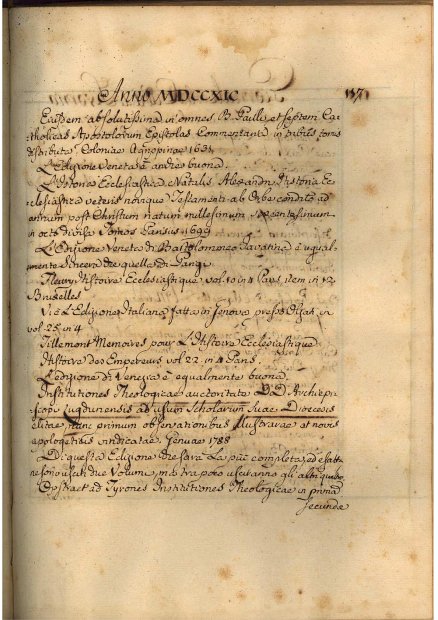 Anno MDCCXIC 137
Eiusdem absolutissima in omnes B. Paulli, et septem Ca-
tholicas Apostolorum Epistolas Commentaria in tribus tomis
distributa Coloniae Agrippinae 1631.
L'Edizione Veneta è anche buona.
L'Istorico Ecclesiastico Natalis Alexandri Historia Ec-
clesiastica veteris novique Testamenti ab Orbe condito ad
annum post Christum natum millesimum sexcentesimum
in octo divisa Tomos Parisiis 1699
L'Edizione Veneta di Bartolomeo Iavarina è ugual-
mente sincera che quella di Parigi
Fleury Histoire Ecclesiastique vol. 20 in 4 Paris item in 12
Bruxelles
Vi è L'Edizione Italiana fatta in Genova presso Olzati in
vol. 25 in 4
Tillemont Memoires pour L'Histoire Ecclesiastique
Histoire des Empereurs vol 22 in 4 Paris.
L'edizione di Venezia è equalmente buona
Institutiones Theologicae auctoritate DD Archiepi-
scopi Lugdunensis ad usum Scholarum Suae Dioecesis
editae, nunc primum observationibus illustratae et novis
apologeticis vindicatae Genuae 1788
Di questa Edizione che sarà La più completa, ed esatta
ne sono usciti due Volumi, in tra poco usciranno gli altri
Contract ad Tyrones Institutiones Theologicae in prima
secunda